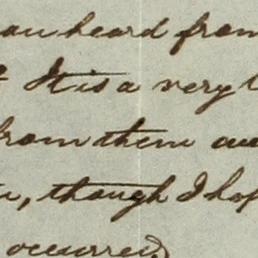 heard from
It is a very
from them
, though I hop
occurred